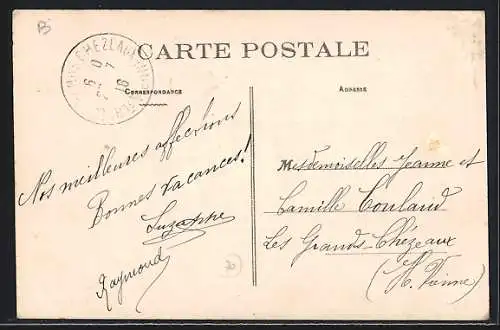 B
CARTE POSTALE
Correspondance
Adresse
Nos meilleures affections
Bonnes Vacances!
Suzanne
Raymond
Mesdemoiselles Jeanne et
Camille Coulaud
Les Grands-Chézeaux
(H. Vienne)